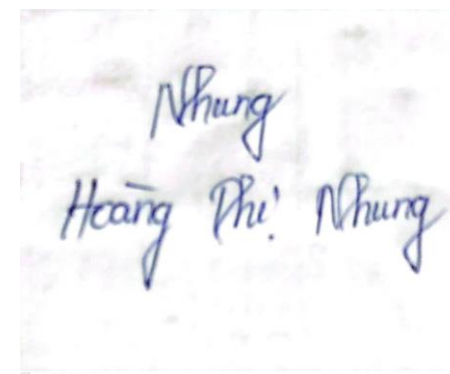 Nhung
Hoàng Thị Nhung